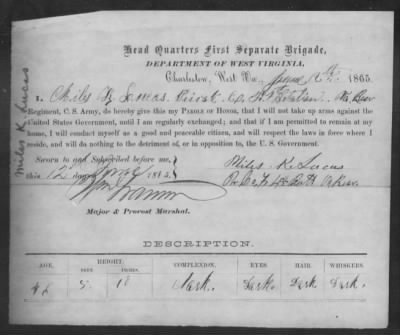 Head Quarters First Separate Brigade,
DEPARTMENT OF WEST VIRGINIA,
Charleston, West Va., June 12th 1865.
I, Miles K Lucas Privat Co,
Regiment, C. S. Army, do hereby give this my PAROLE OF HONOR, that I will not take up arms against the
United States Government, until I am regularly exchanged; and that if I am permitted to remain at my
home, I will conduct myself as a good and peaceable citizen, and will respect the laws in force where I
reside, and will do nothing to the detriment of, or in opposition to, the U. S. Government.
Sworn to and Subscribed before me,
this 12 day June 186
Miles K. Lucas
Major & Provost Marshal.
DESCRIPTION.
AGE. HEIGHT. COMPLEXION. EYES. HAIR. WHISKERS.
FEET. INCHES.
42 5 10 Dark. Dark. Dark Dark.
Miles K. Lucas